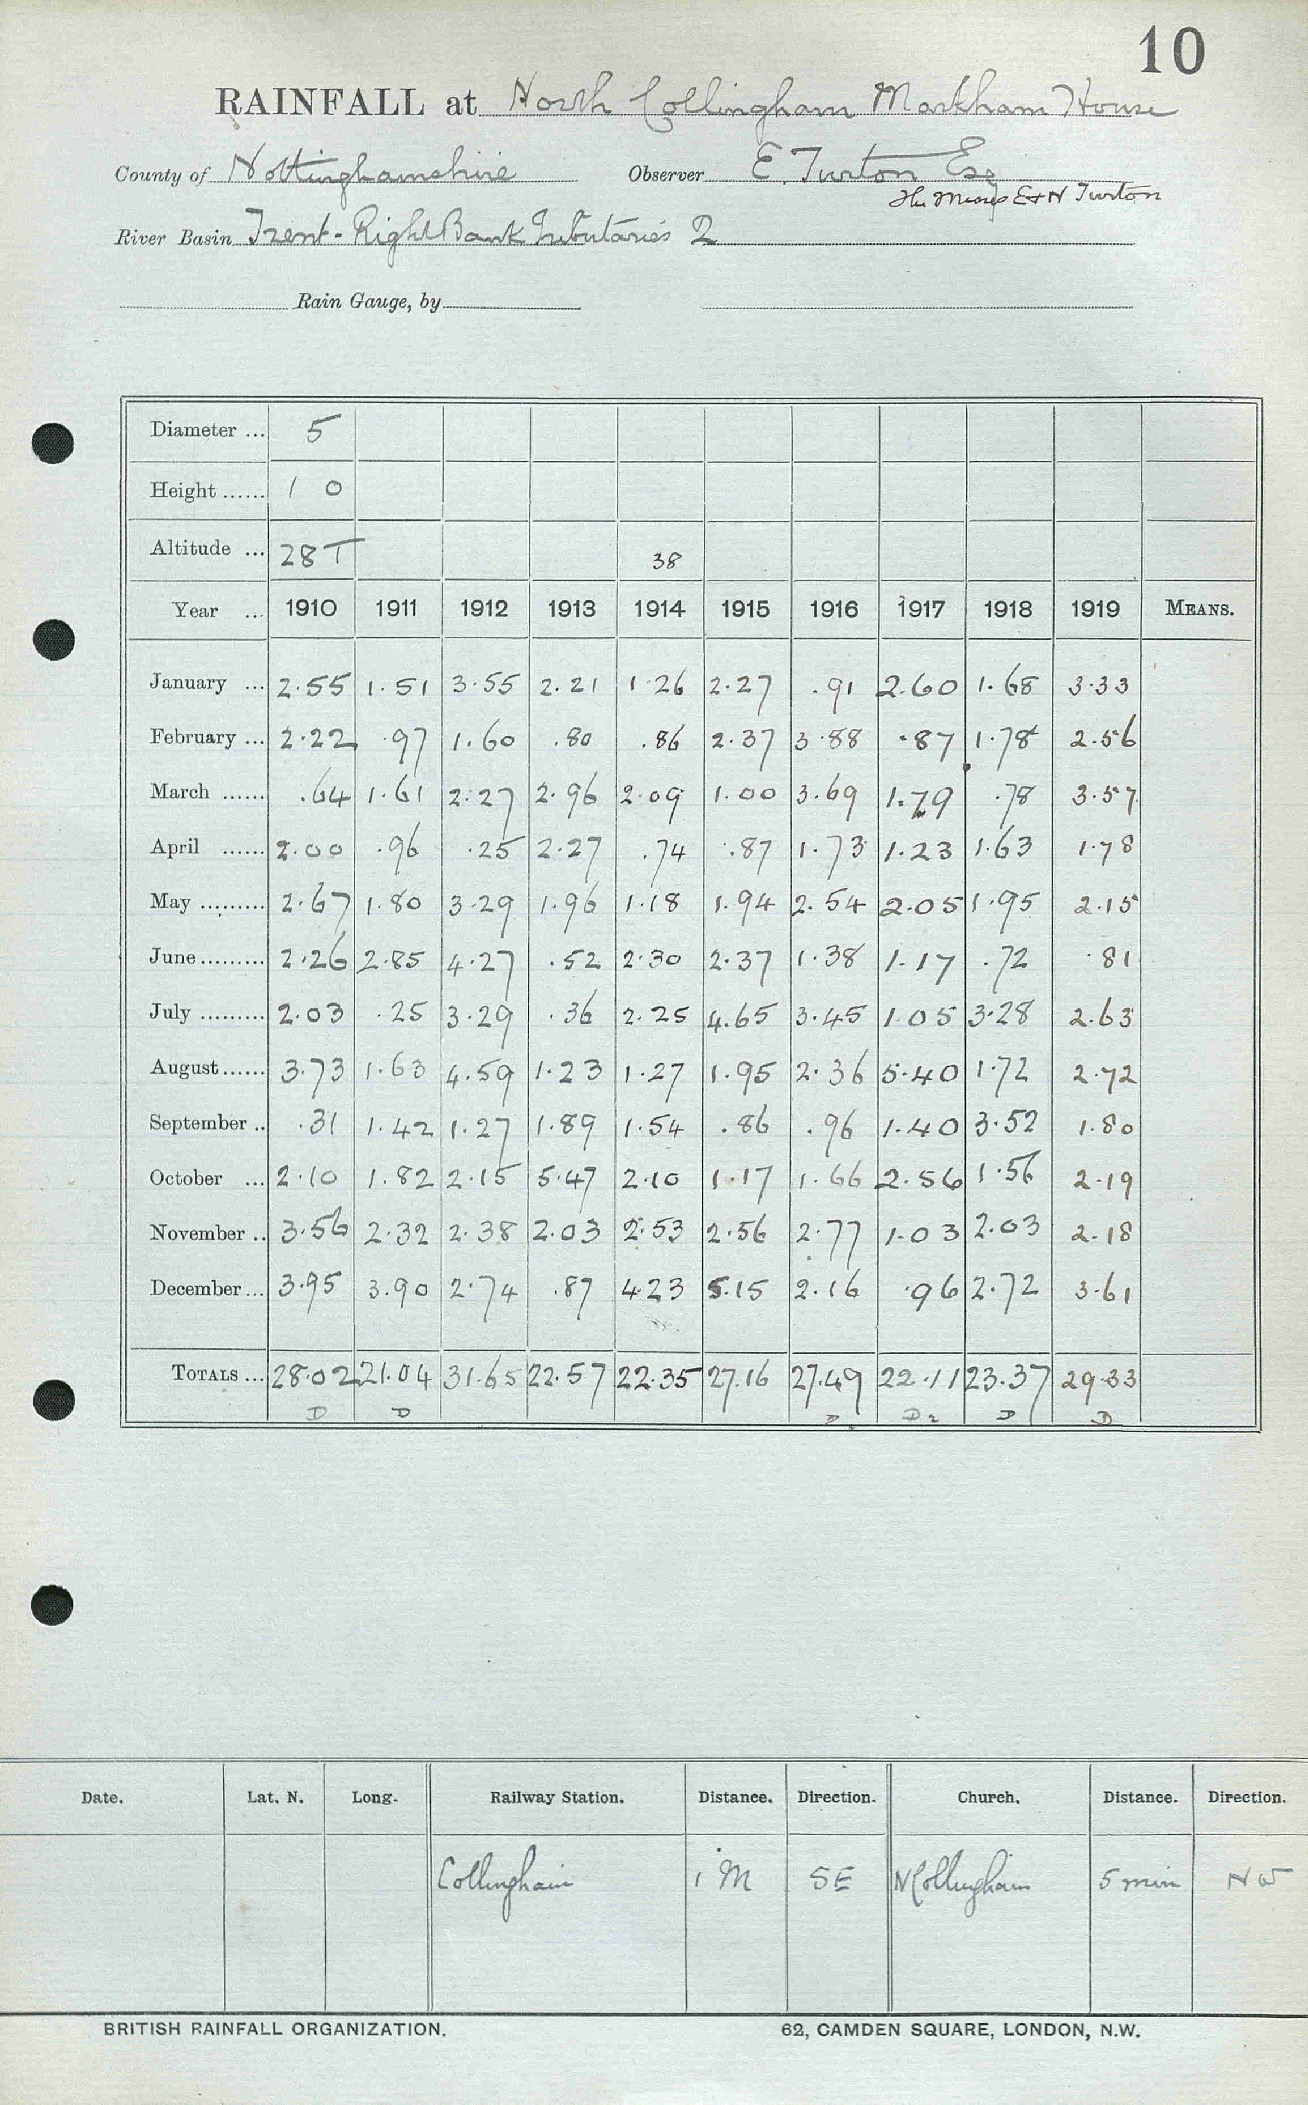 10
RAINFALL at North Collingham Markham House
County of Nottinghamshire Observer E. Turton Esq
The Misses E & H Turton
River Basin Trent - Right Bank Tributaries 2
Rain Gauge, by
Diameter ... 5
Height ...... 1 0
Altitude ... 28 T 38
Year ... 1910 1911 1912 1913 1914 1915 1916 1917 1918 1919 MEANS.
January ... 2.55 1.51 3.55 2.21 1.26 2.27 .91 2.60 1.68 3.33
February ... 2.22 .97 1.60 .80 .86 2.37 3.88 .87 1.78 2.56
March ...... .64 1.61 2.27 2.96 2.09 1.00 3.69 1.79 .78 3.57
April ...... 2.00 .96 .25 2.27 .74 .87 1.73 1.23 1.63 1.78
May ......... 2.67 1.80 3.29 1.96 1.18 1.94 2.54 2.05 1.95 2.15
June ......... 2.26 2.85 4.27 .52 2.30 2.37 1.38 1.17 .72 .81
July ......... 2.03 .25 3.29 .36 2.25 4.65 3.45 1.05 3.28 2.63
August ...... 3.73 1.63 4.59 1.23 1.27 1.95 2.36 5.40 1.72 2.72
September .. .31 1.42 1.27 1.89 1.54 .86 .96 1.40 3.52 1.80
October ... 2.10 1.82 2.15 5.47 2.10 1.17 1.66 2.56 1.56 2.19
November .. 3.56 2.32 2.38 2.03 2.53 2.56 2.77 1.03 2.03 2.18
December ... 3.95 3.90 2.74 .87 4.23 5.15 2.16 .96 2.72 3.61
TOTALS ... 28.02 21.04 31.65 22.57 22.35 27.16 27.49 22.11 23.37 29.33
D D D D2 D D
Date. Lat. N. Long. Railway Station. Distance. Direction. Church. Distance. Direction.
Collingham 1 M SE N Collingham 5 min NW
BRITISH RAINFALL ORGANIZATION. 62, CAMDEN SQUARE, LONDON, N.W.